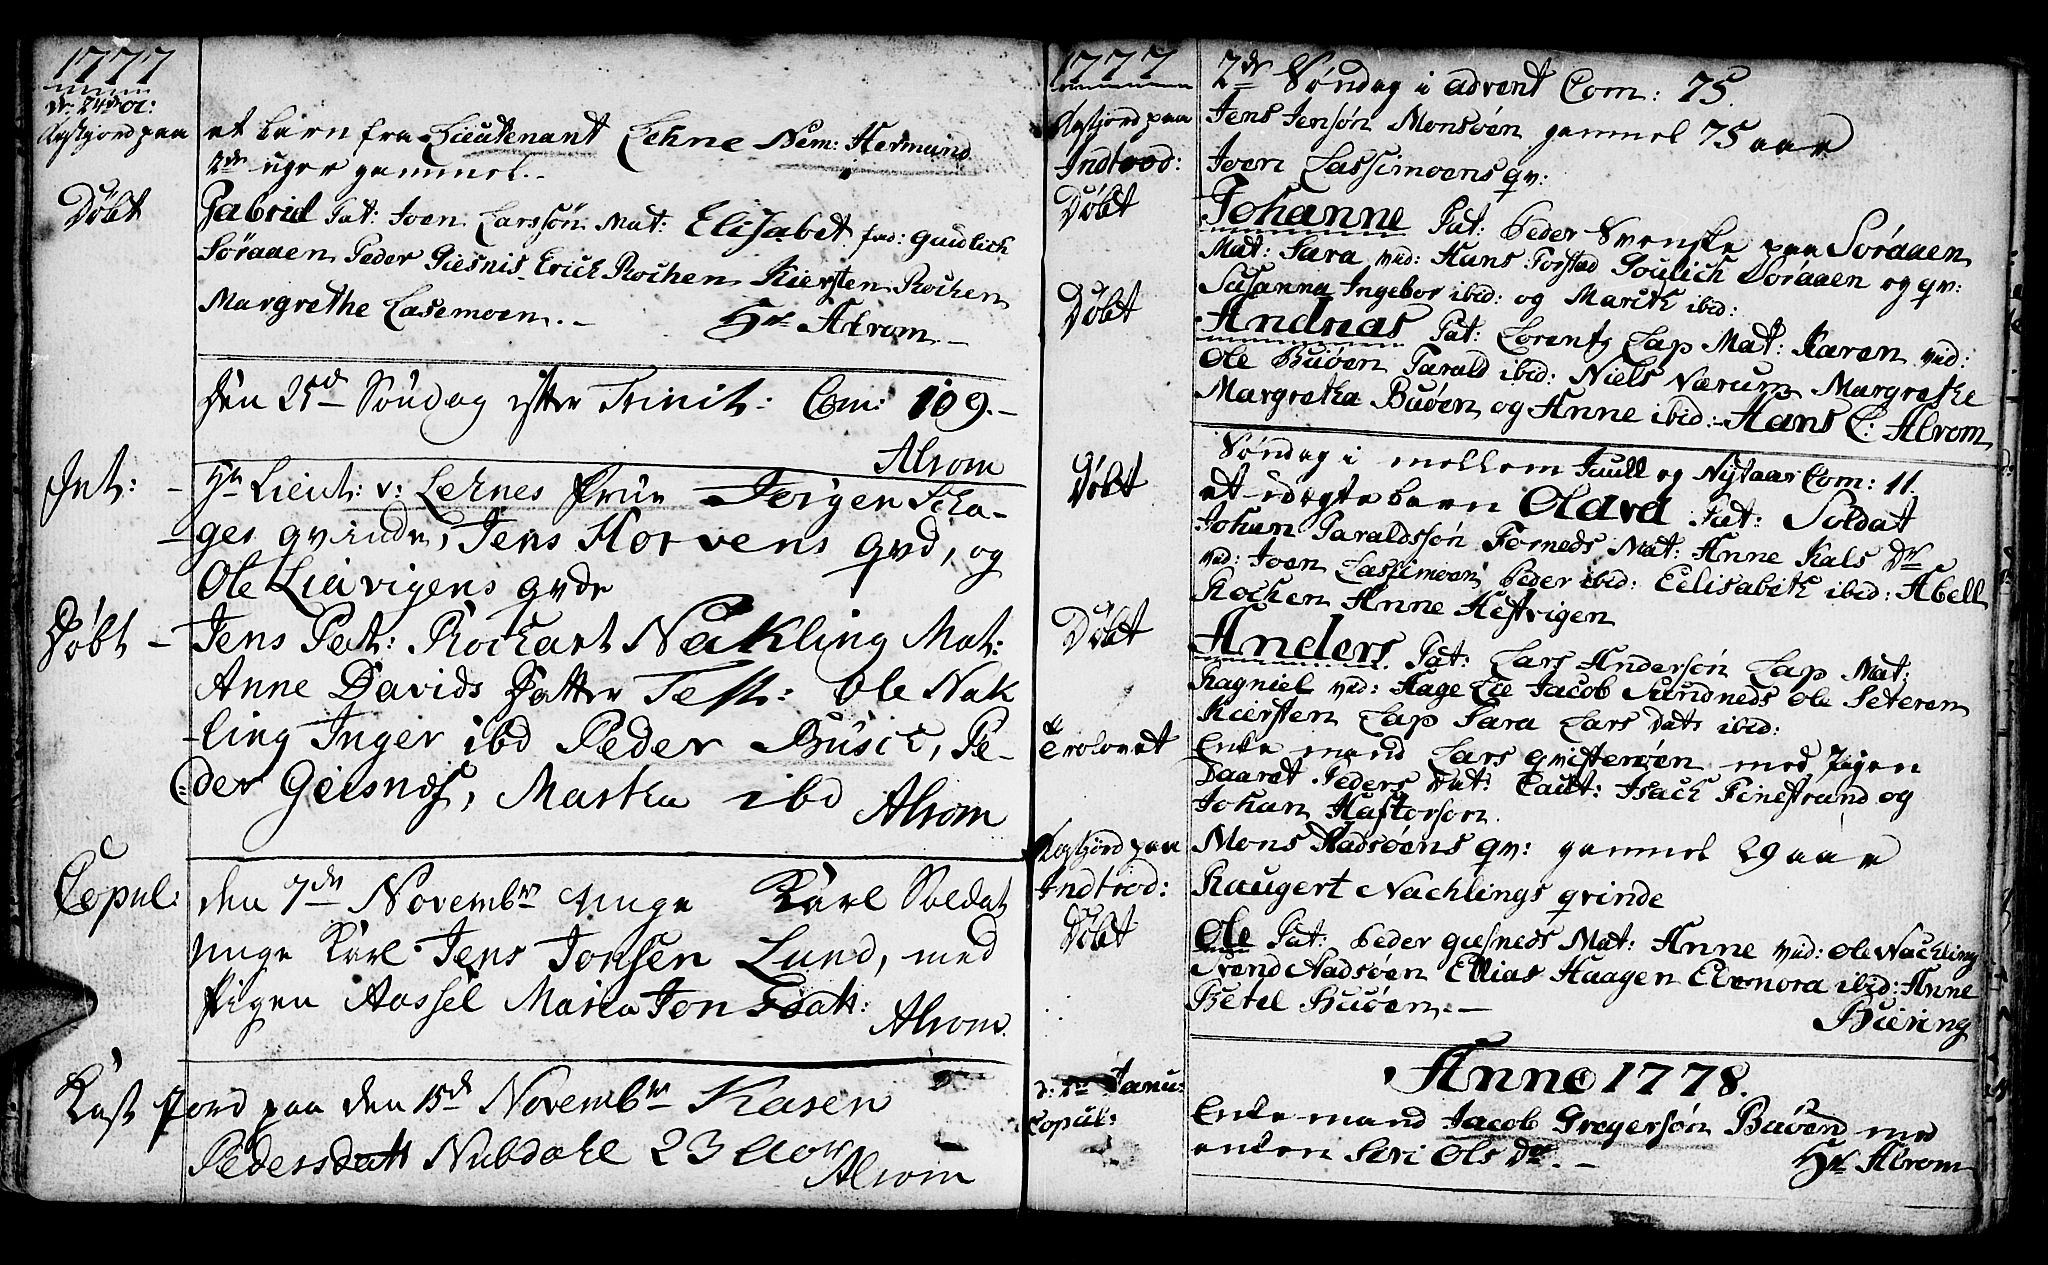 1777
d: 24de oc:
Kastjord paa
et barn fra Lieutenant Lehne Nem: Hermund
2de uger gammel.
Døbt
Gabriel Pat: Joen Larssøn Mat: Elisabet fad: Gudlich
Søraaen Peder Giesnis Erick Rochen Kiersten Rochen
Margrethe Lasemoen. Hr Alrom
Den 25de Søndag efter Trinit: Com: 109.
Alrom
Int:
Hr Lieut: v: Lehnes Frue Jørgen Ska-
ges qvinde, Jens Horvens qvd, og
Ole Lievigens qvde
Døbt
Jens Pat: Rochart Nækling Mat:
Anne Davids Datter Test: Ole Nak
ling Inger ibd Peder Busie, Pe-
der Geisnes, Martha ibd Alrom
Copul:
den 7de Novembr unge Karl Soldat
unge Karl Jens Jonsen Lund, med
Pigen Aassel Maria Jons Datt:
Alrom
Kast Jord paa den 15de Novembr Karen
Pedersdatt Nubdahl 23 Aar
Alrom
1777
2de Søndag i advent Com: 75.
Kastjord paa
Jens Jensøn Monsøen gammel 75 aar
Indtrod:
Joen Lassemoens qv:
Døbt
Johanne Pat: Peder Svenske paa Søraaen
Mat: Sara vid: Hans Forstad Goulich Søraaen og qv:
Susanna Ingebor ibid: og Marith ibid:
Døbt
Andreas Pat: Lorentz Lap Mat: Karen vid:
Ole Buøen Tarald ibid: Niels Nærum Margrethe
Margretha Buøen og Anne ibid: Hans C: Alrom
Søndag i mellem Juull og Nytaar Com: 11.
Døbt
et uægte barn Olava Pat: Soldat
Johan Taraldssøn Forneds Mat: Anne Kals Dr
vid: Joen Lassemoen Peder ibid: Eelisabeth ibid: Abell
Rochen Anne Hestvigen
Døbt
Anders Pat: Lars Andersøn Lap Mat:
Ragniel vid: Hage Lie Jacob Sundneds Ole Seteren
Kiersten Lap Sara Lars Dat: ibid:
Trolovet
Enke mand Lars Qvisterøen med Pigen
Daaret Peders Dat: Caut: Isach Finestrand og
Johan Hastorson.
Kastjord paa
Mons Radsøens qv: gammel 29 aar
Indtrod:
Raugert Nachlings qvinde
Døbt
Ole Pat: Peder Giesneds Mat: Anne vid: Ole Nachling
Svend Aadsøen Ellias Haagen Elenora ibid: Anne
Betel Buøen.
Buering
Anno 1778.
d: 2de Janu:
Copul:
Enke mand Jacob Gregersøn Buøen med
enken Siri Ols Dr.
Hr Alrom